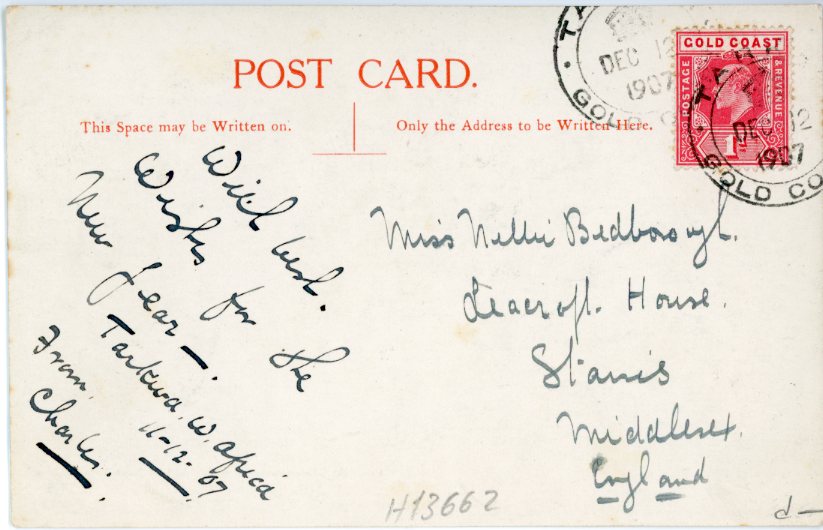 POST CARD.
This Space may be Written on.
Only the Address to be Written Here.
GOLD COAST
POSTAGE
& REVENUE
1D
DEC 12
1907
GOLD
DEC 12
1907
GOLD CO
With best.
Wishes for the
New Year.
Tarkwa. W. Africa
11-12-07
From.
Charles.
Miss Nellie Bedborough.
Leacroft. House.
Stanis
Middlesex.
England
H13662
d-